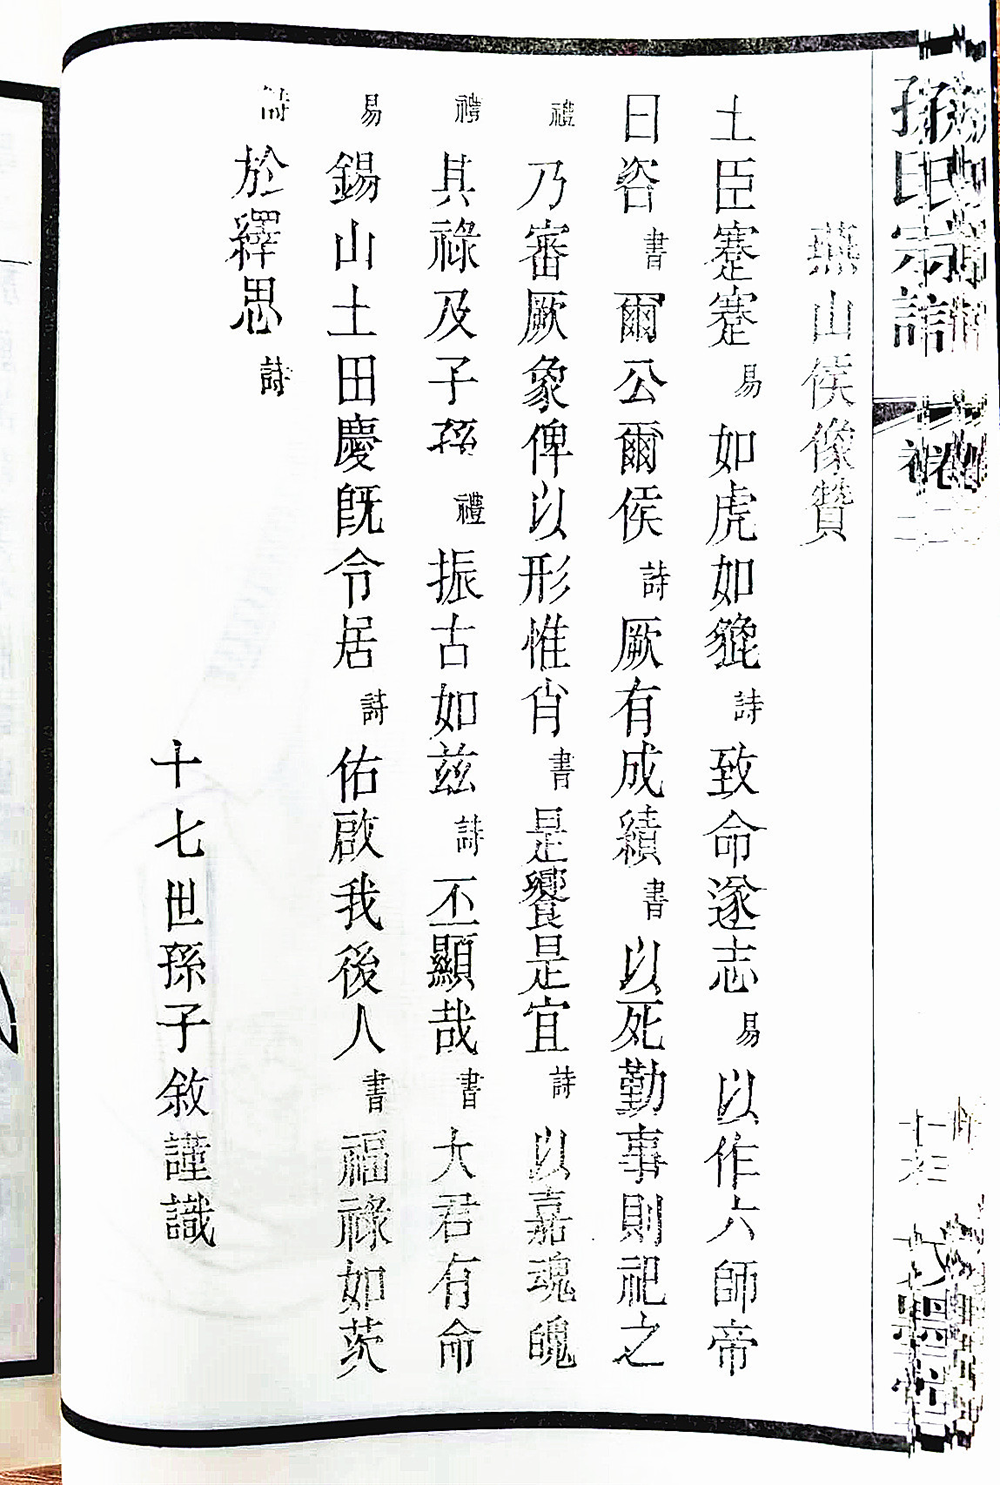 燕山侯像贊
王臣蹇蹇易如虎如貔詩致命遂志易以作六師帝
曰咨書爾公爾侯詩厥有成績書以死勤事則祀之
禮乃審厥象俾以形惟肖書是饗是宜詩以嘉魂魄
禮其祿及子孫禮振古如茲詩丕顯哉書大君有命
易錫山土田慶既令居詩佑啟我後人書福祿如茨
詩於繹思詩
十七世孫子敘謹識